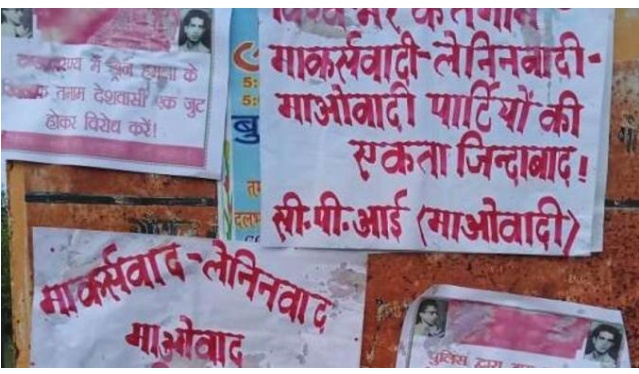 में खूनी हमला के
तमाम देशवासी एक जुट
होकर विरोध करें!
5:
5:
विश्व भर के तमाम
मार्क्सवादी-लेनिनवादी-
माओवादी पार्टियों की
एकता जिन्दाबाद!
सी.पी.आई (माओवादी)
मार्क्सवाद-लेनिनवाद
माओवाद
पुलिस द्वारा